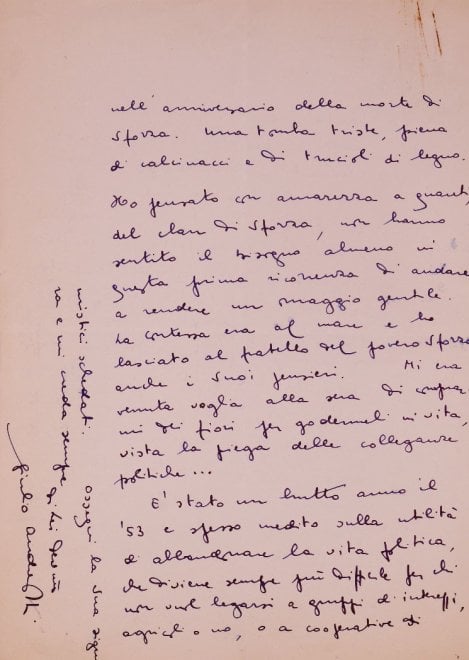 nell'anniversario della morte di
Sforza. Una tomba triste, piena
di calcinacci e di trucioli di legno.
Ho pensato con amarezza a quanti,
del clan di Sforza, non hanno
sentito il bisogno almeno in
questa prima ricorrenza di andare
a rendere un omaggio gentile.
La contessa era al mare e ho
lasciato al fratello del povero Sforza
anche i suoi pensieri. Mi era
venuta voglia alla sera di comprar
mi dei fiori per godermeli in vita,
vista la piega delle colleganze
politiche...
E' stato un brutto anno il
'53 e spesso medito sulla utilità
di abbandonare la vita politica,
che diviene sempre più difficile per chi
non vuol legarsi a gruppi di interessi,
agricoli o no, o a cooperative di
mistici schedati.
ossequi la sua signo
ra e mi creda sempre di lei
Giulio Andreotti.